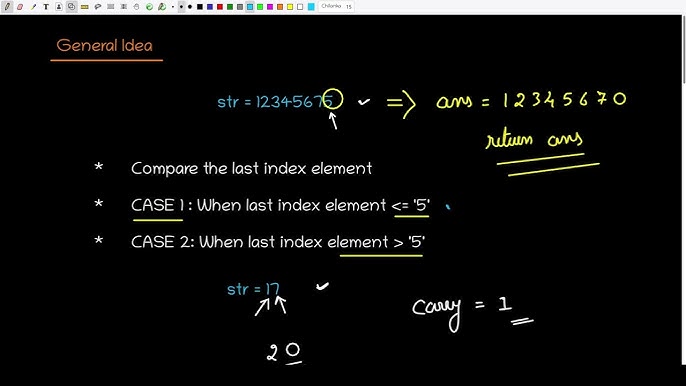 Chilanka 15
General Idea
str = 12345675 ⇒ ans = 12345670
return ans
* Compare the last index element
* CASE 1 : When last index element <= '5'
* CASE 2: When last index element > '5'
str = 17
carry = 1
20